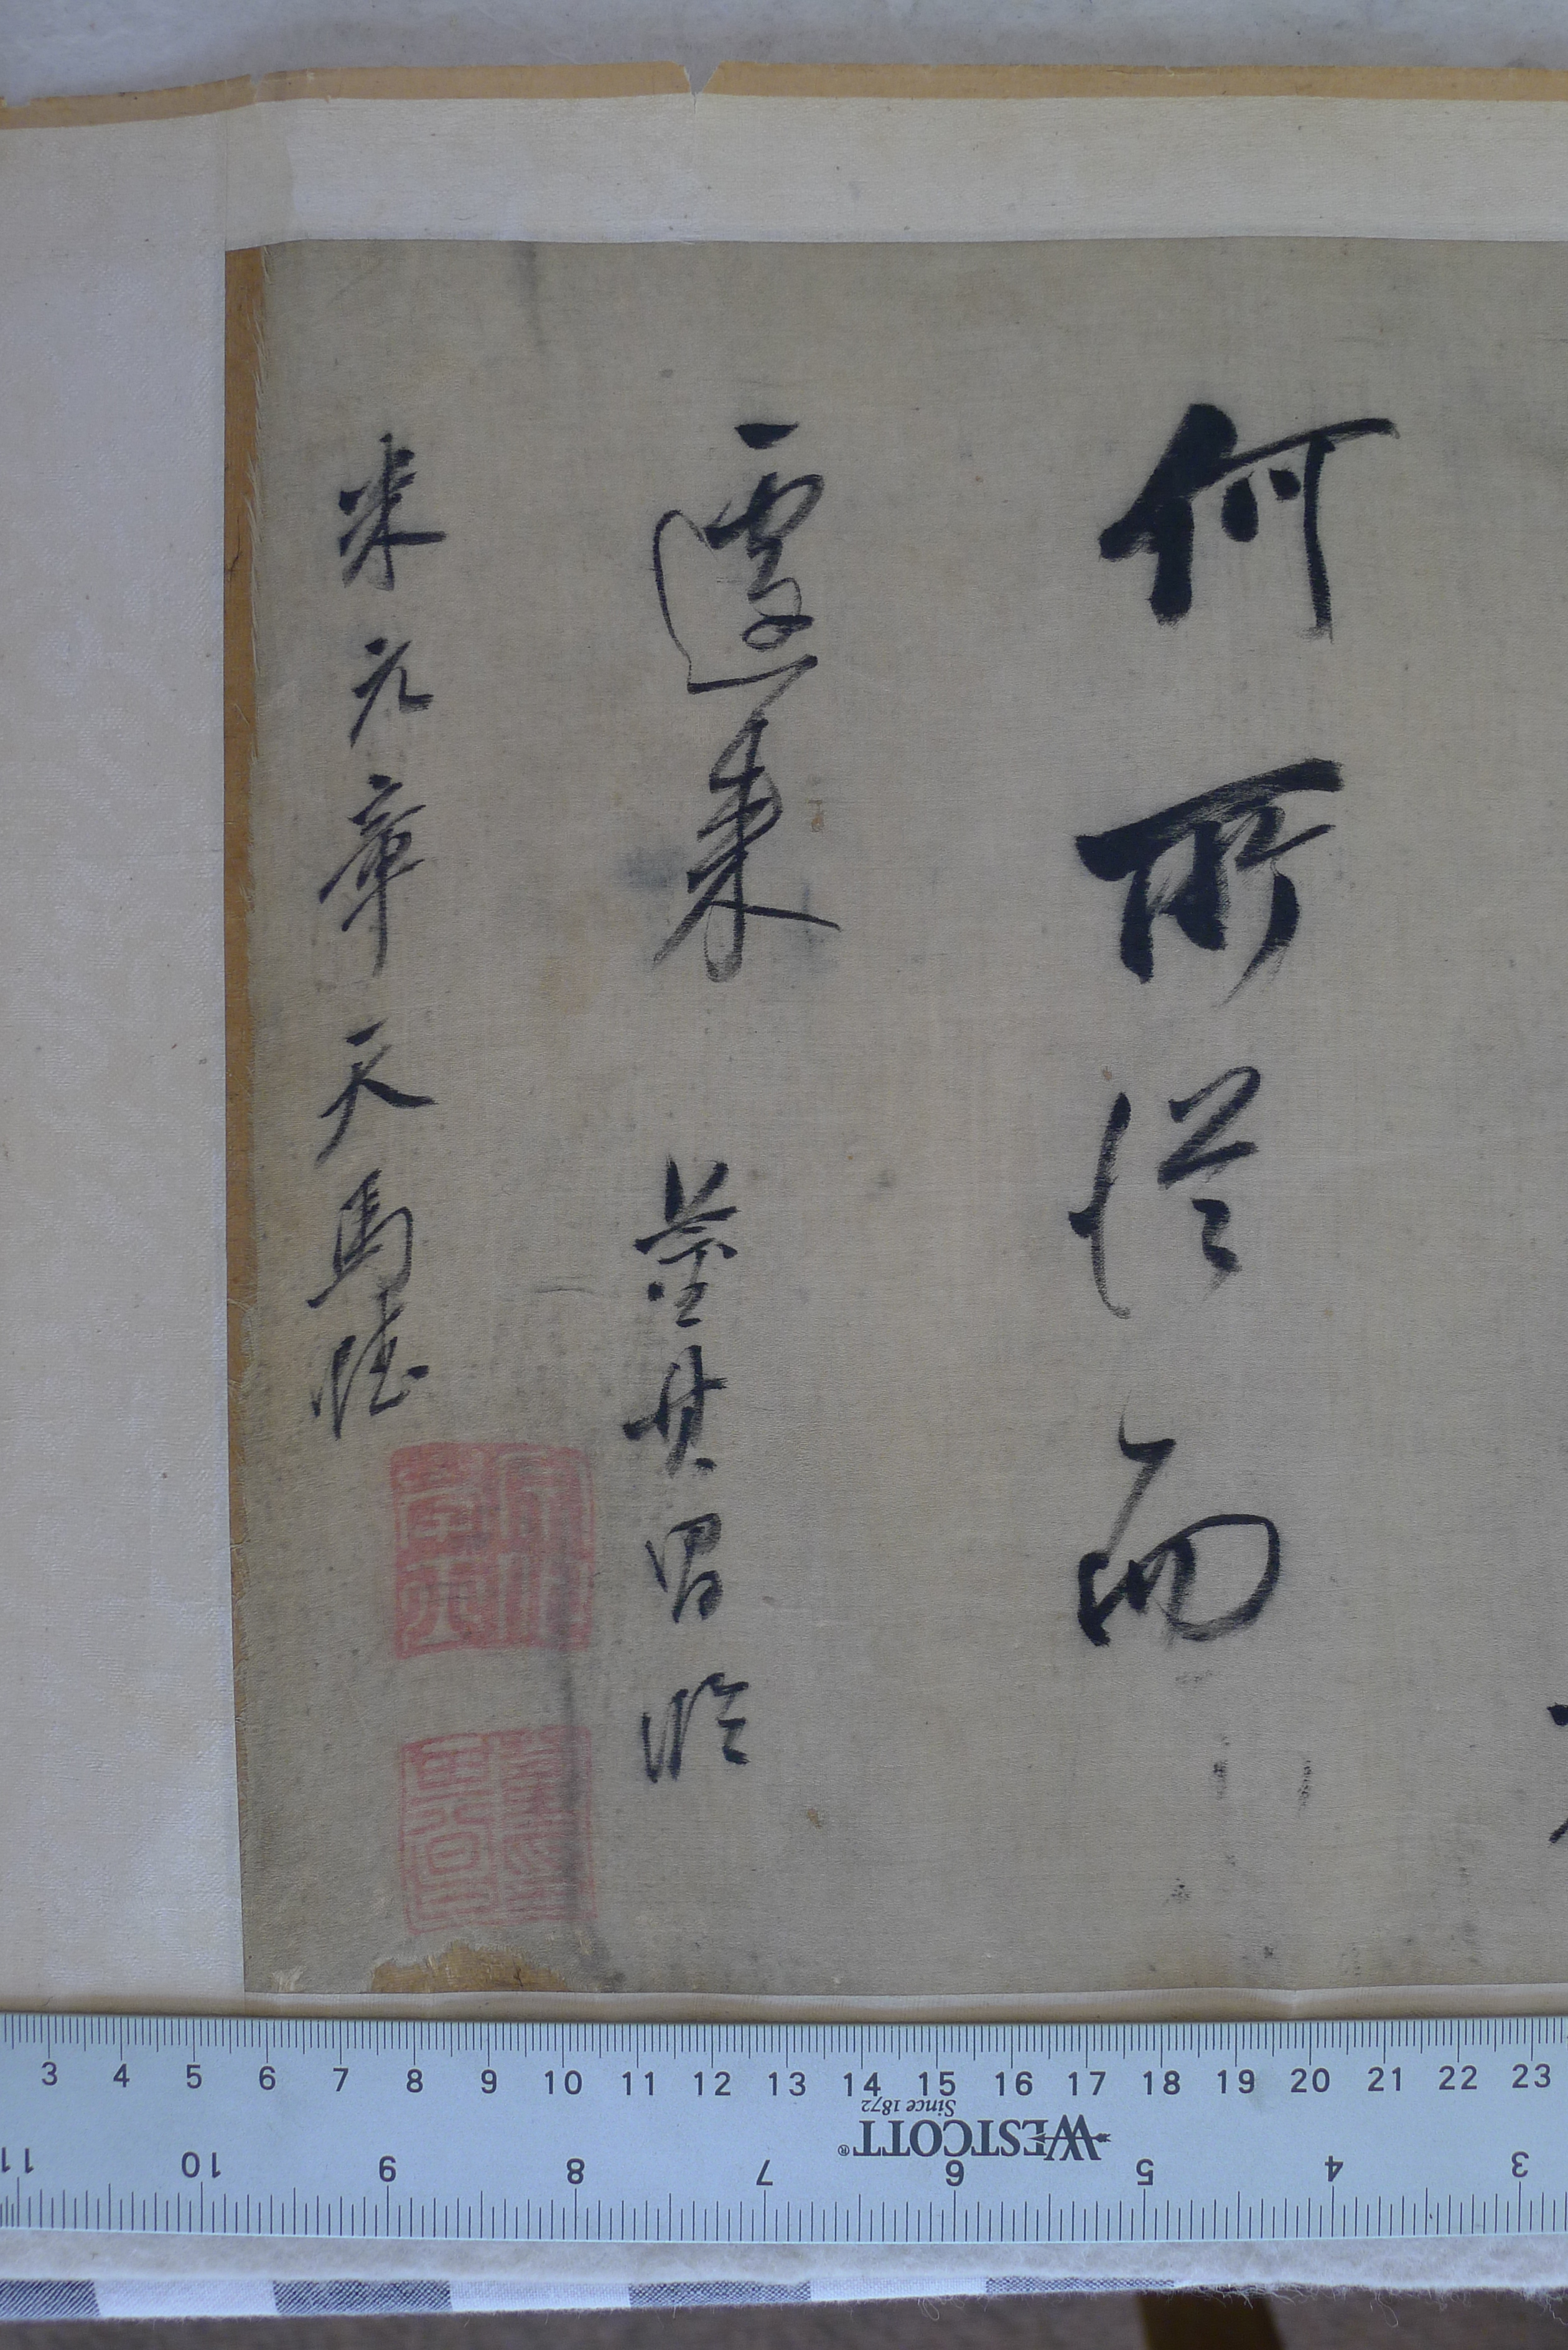 何所從而
遽來 董其昌臨
米元章天馬賦
3 4 5 6 7 8 9 10 11 12 13 14 15 16 17 18 19 20 21 22 23
WESTCOTT®
Since 1872
3 4 5 6 7 8 9 10 11